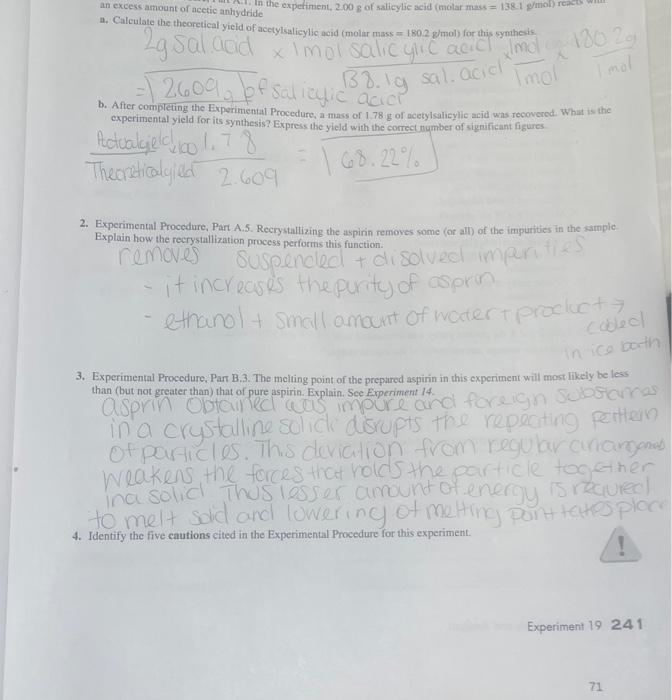 an excess amount of acetic anhydride
In the experiment, 2.00 g of salicylic acid (molar mass = 138.1 g/mol) reacts
a. Calculate the theoretical yield of acetylsalicylic acid (molar mass = 180.2 g/mol) for this synthesis.
2g sal acid x 1 mol salicylic acid x 1mol x 180.2g
138.1g sal. acid 1mol 1 mol
= 2.609g of salicylic acid
b. After completing the Experimental Procedure, a mass of 1.78 g of acetylsalicylic acid was recovered. What is the
experimental yield for its synthesis? Express the yield with the correct number of significant figures.
x100 1.78
= 68.22%
2.609
2. Experimental Procedure, Part A.5. Recrystallizing the aspirin removes some (or all) of the impurities in the sample.
Explain how the recrystallization process performs this function.
removes suspended + disolved
- it increases the purity of asprin
- ethanol + small amount of water + product →
cooled
in ice bath
3. Experimental Procedure, Part B.3. The melting point of the prepared aspirin in this experiment will most likely be less
than (but not greater than) that of pure aspirin. Explain. See Experiment 14.
asprin obtained was impure and foreign
in a crystalline solid disrupts the repeating pattern
of particles. This deviation from regular
weakens the forces that holds the particle together
in a solid. Thus lesser amount of energy is required
to melt solid and lowering of melting point takes place
4. Identify the five cautions cited in the Experimental Procedure for this experiment.
!
Experiment 19 241
71